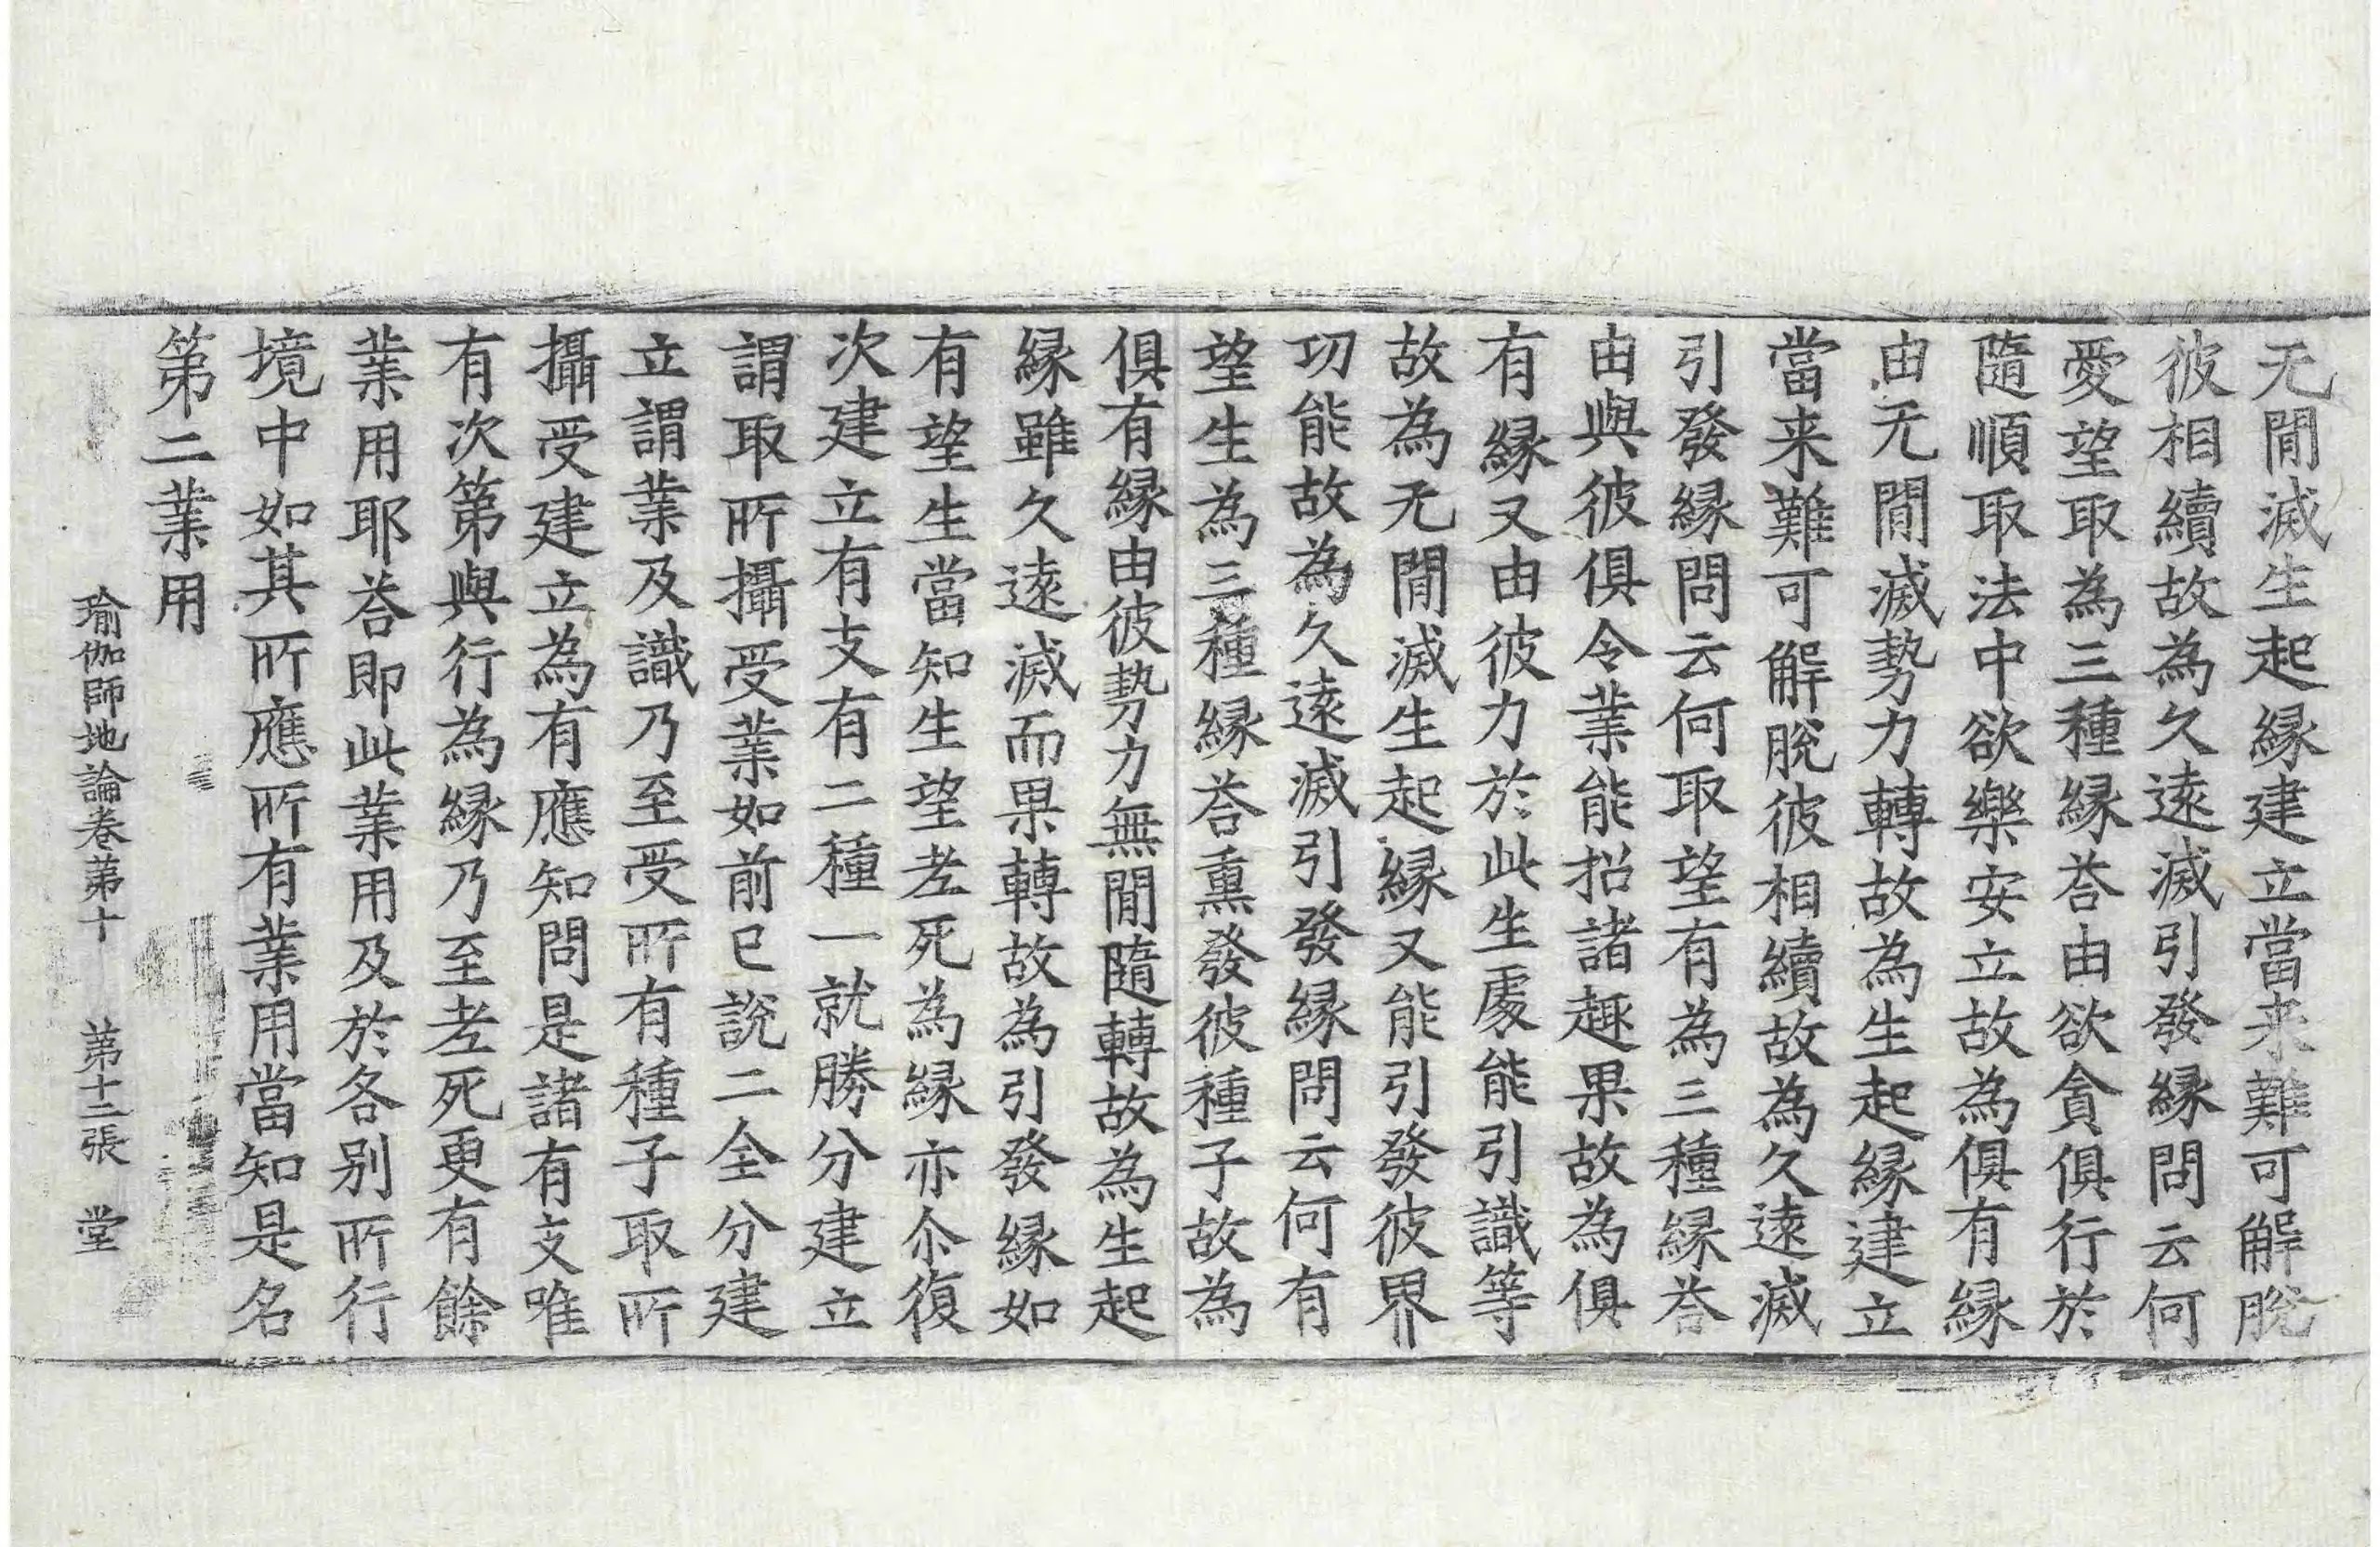 无閒滅生起縁建立當来難可解脫
彼相續故為久遠滅引發縁問云何
愛望取為三種縁荅由欲貪俱行於
隨順取法中欲樂安立故為俱有縁
由无閒滅勢力轉故為生起縁建立
當来難可解脫彼相續故為久遠滅
引發縁問云何取望有為三種縁荅
由與彼俱令業能招諸趣果故為俱
有縁又由彼力於此生處能引識等
故為无閒滅生起縁又能引發彼界
功能故為久遠滅引發縁問云何有
望生為三種縁荅熏發彼種子故為
俱有縁由彼勢力無閒隨轉故為生起
縁雖久遠滅而果轉故為引發縁如
有望生當知生望老死為縁亦尒復
次建立有支有二種一就勝分建立
謂取所攝受業如前已說二全分建
立謂業及識乃至受所有種子取所
攝受建立為有應知問是諸有支唯
有次第與行為縁乃至老死更有餘
業用耶荅即此業用及於各別所行
境中如其所應所有業用當知是名
第二業用
瑜伽師地論卷第十 第十二張 堂